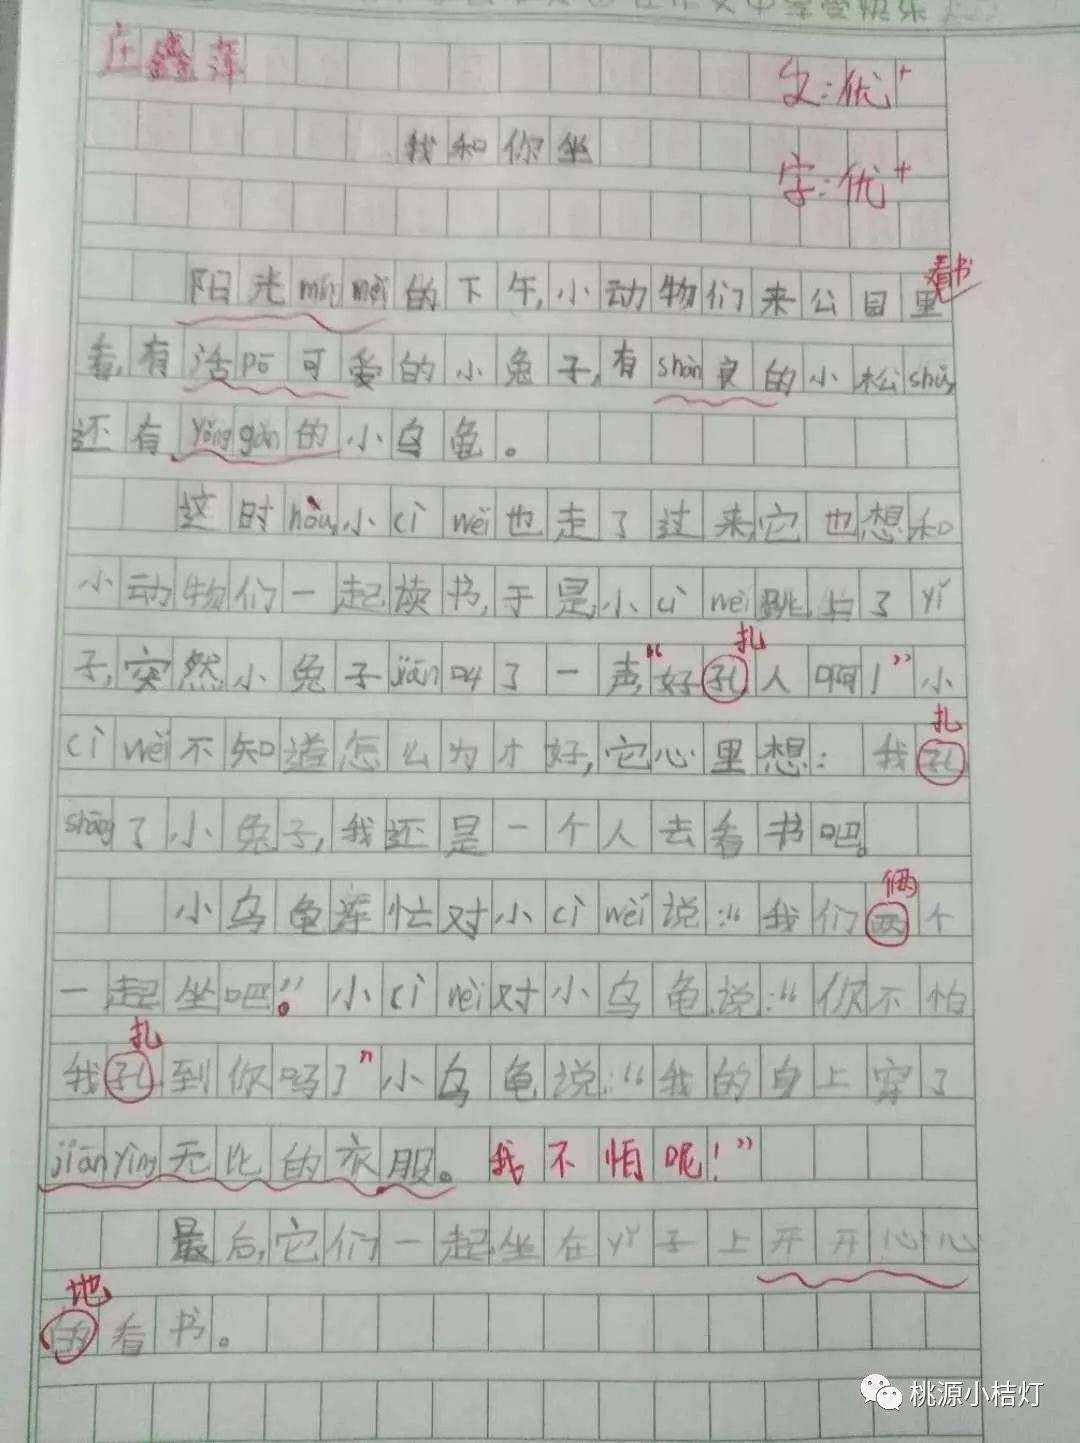 在作文中享受快乐
庄鑫萍
文:优+
我和你坐
字:优+
看书
阳光míng mèi的下午,小动物们来公园里
看,有活pō可爱的小兔子,有shàn良的小松shǔ,
还有yǒng gǎn的小乌龟。
这时hòu,小cì wèi也走了过来,它也想和
小动物们一起读书,于是,小cì wèi跳上了yǐ
扎
子,突然,小兔子jiān叫了一声“好孔人啊!”小
扎
cì wèi不知道怎么为才好,它心里想:我孔
shāng了小兔子,我还是一个人去看书吧。
俩
小乌龟连忙对小cì wèi说:“我们两个
一起坐吧。”小cì wèi对小乌龟说:“你不怕
扎
我孔到你吗?”小乌龟说:“我的身上穿了
jiān yìng无比的衣服。我不怕呢!”
最后,它们一起坐在yǐ子上开开心心
地
的看书。
桃源小桔灯